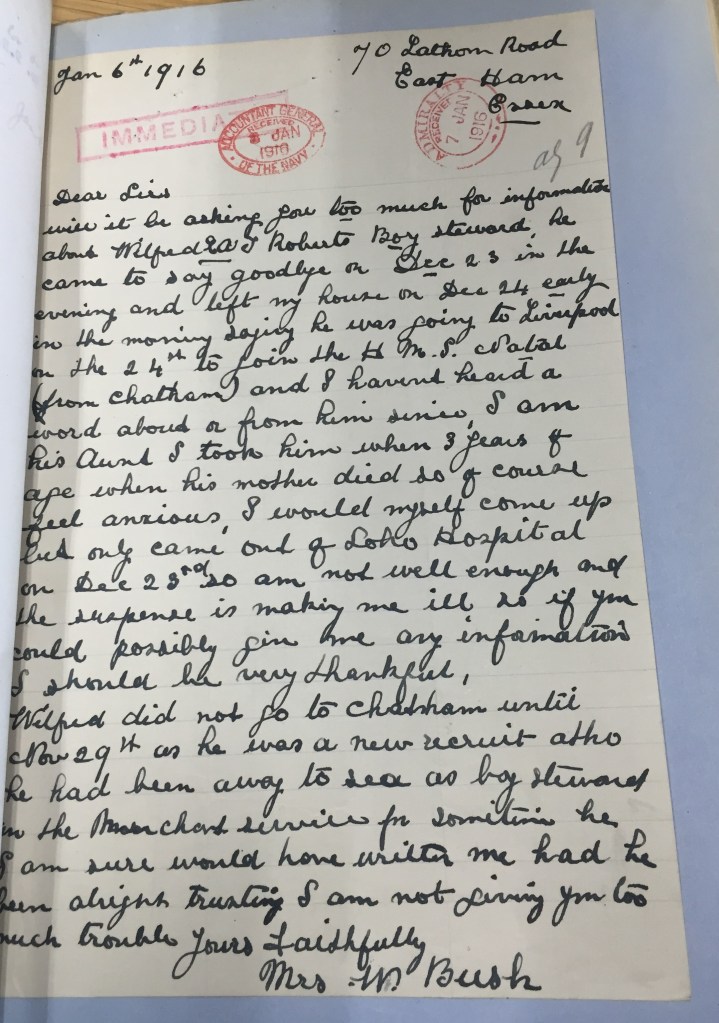 Jan 6th 1916
70 Lathom Road
East Ham
Essex
IMMEDIA
ACCOUNTANT GENERAL
RECEIVED
JAN
1916
OF THE NAVY
ADMIRALTY
RECEIVED
7 JAN
1916
Dear Sirs
will it be asking you too much for information
about Wilfred EA J Roberts Boy steward, he
came to say goodbye on Dec 23 in the
evening and left my house on Dec 24 early
in the morning saying he was going to Liverpool
on the 24th to join the H M.S. Natal
(from Chatham) and I havent heard a
word about or from him since, I am
his Aunt I took him when 3 years of
age when his mother died so of course
feel anxious, I would myself come up
but only came out of Soho Hospital
on Dec 23rd so am not well enough and
the suspense is making me ill so if you
could possibly give me any information
I should be very thankful,
Wilfred did not go to Chatham until
Nov 29th as he was a new recruit altho
he had been away to sea as boy steward
in the Merchant service for sometime he
I am sure would have written me had he
been alright trusting I am not giving you too
much trouble Yours Faithfully
Mrs W. Bush